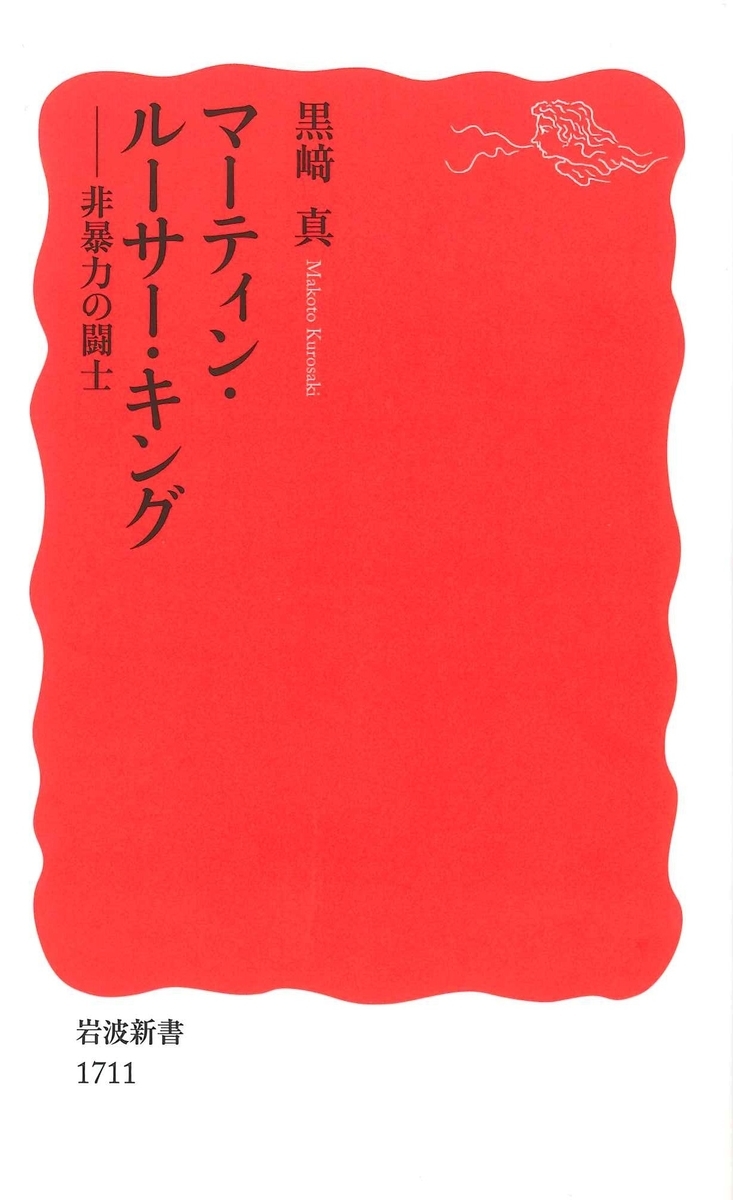 黒﨑 真 Makoto Kurosaki
マーティン・
ルーサー・キング
──非暴力の闘士
岩波新書
1711